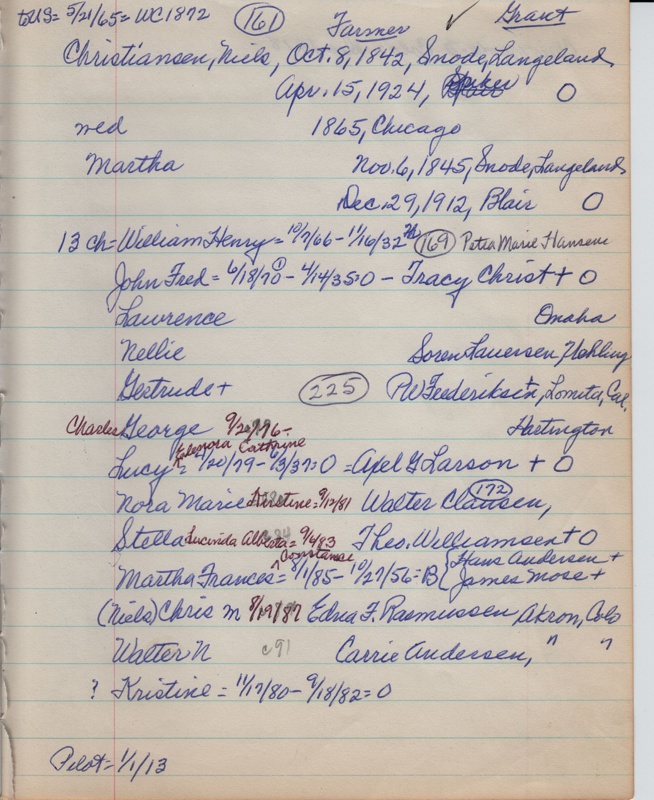 to US = 5/21/65 = WC 1872 (161) Farmer ✓ Grant
Christiansen, Niels, Oct. 8, 1842, Snode, Langeland
Apr. 15, 1924, Spiker O
wed 1865, Chicago
Martha Nov. 6, 1845, Snode, Langeland
Dec. 29, 1912, Blair O
13 ch = William Henry = 10/7/66 - 11/16/32 (169) Petra Marie Hansen
John Fred = 6/18/70 - 4/14/35=O - Tracy Christ + O
Lawrence Omaha
Nellie Soren Lauersen, Uehling
Gertrude + (225) PW Frederiksen +, Lomita, Cal.
Charles George Hartington
Elenora Cathrine
Lucy = 4/20/79 - 6/3/37=O = Axel G Larson + O
Nora Marie Kirstine = 9/12/81 Walter Clausen, (172)
Stella Lucinda Alberta = 9/4/83 Theo. Williamsen + O
Constance
Martha Frances = 8/1/85 - 10/27/56 = B { Hans Andersen +
James Mose +
(Niels) Chris M 8/19/87 Edna F. Rasmussen, Akron, Colo
Walter N c 91 Carrie Andersen, " "
? Kristine = 11/17/80 - 9/18/82 = O
Pilot = 1/1/13